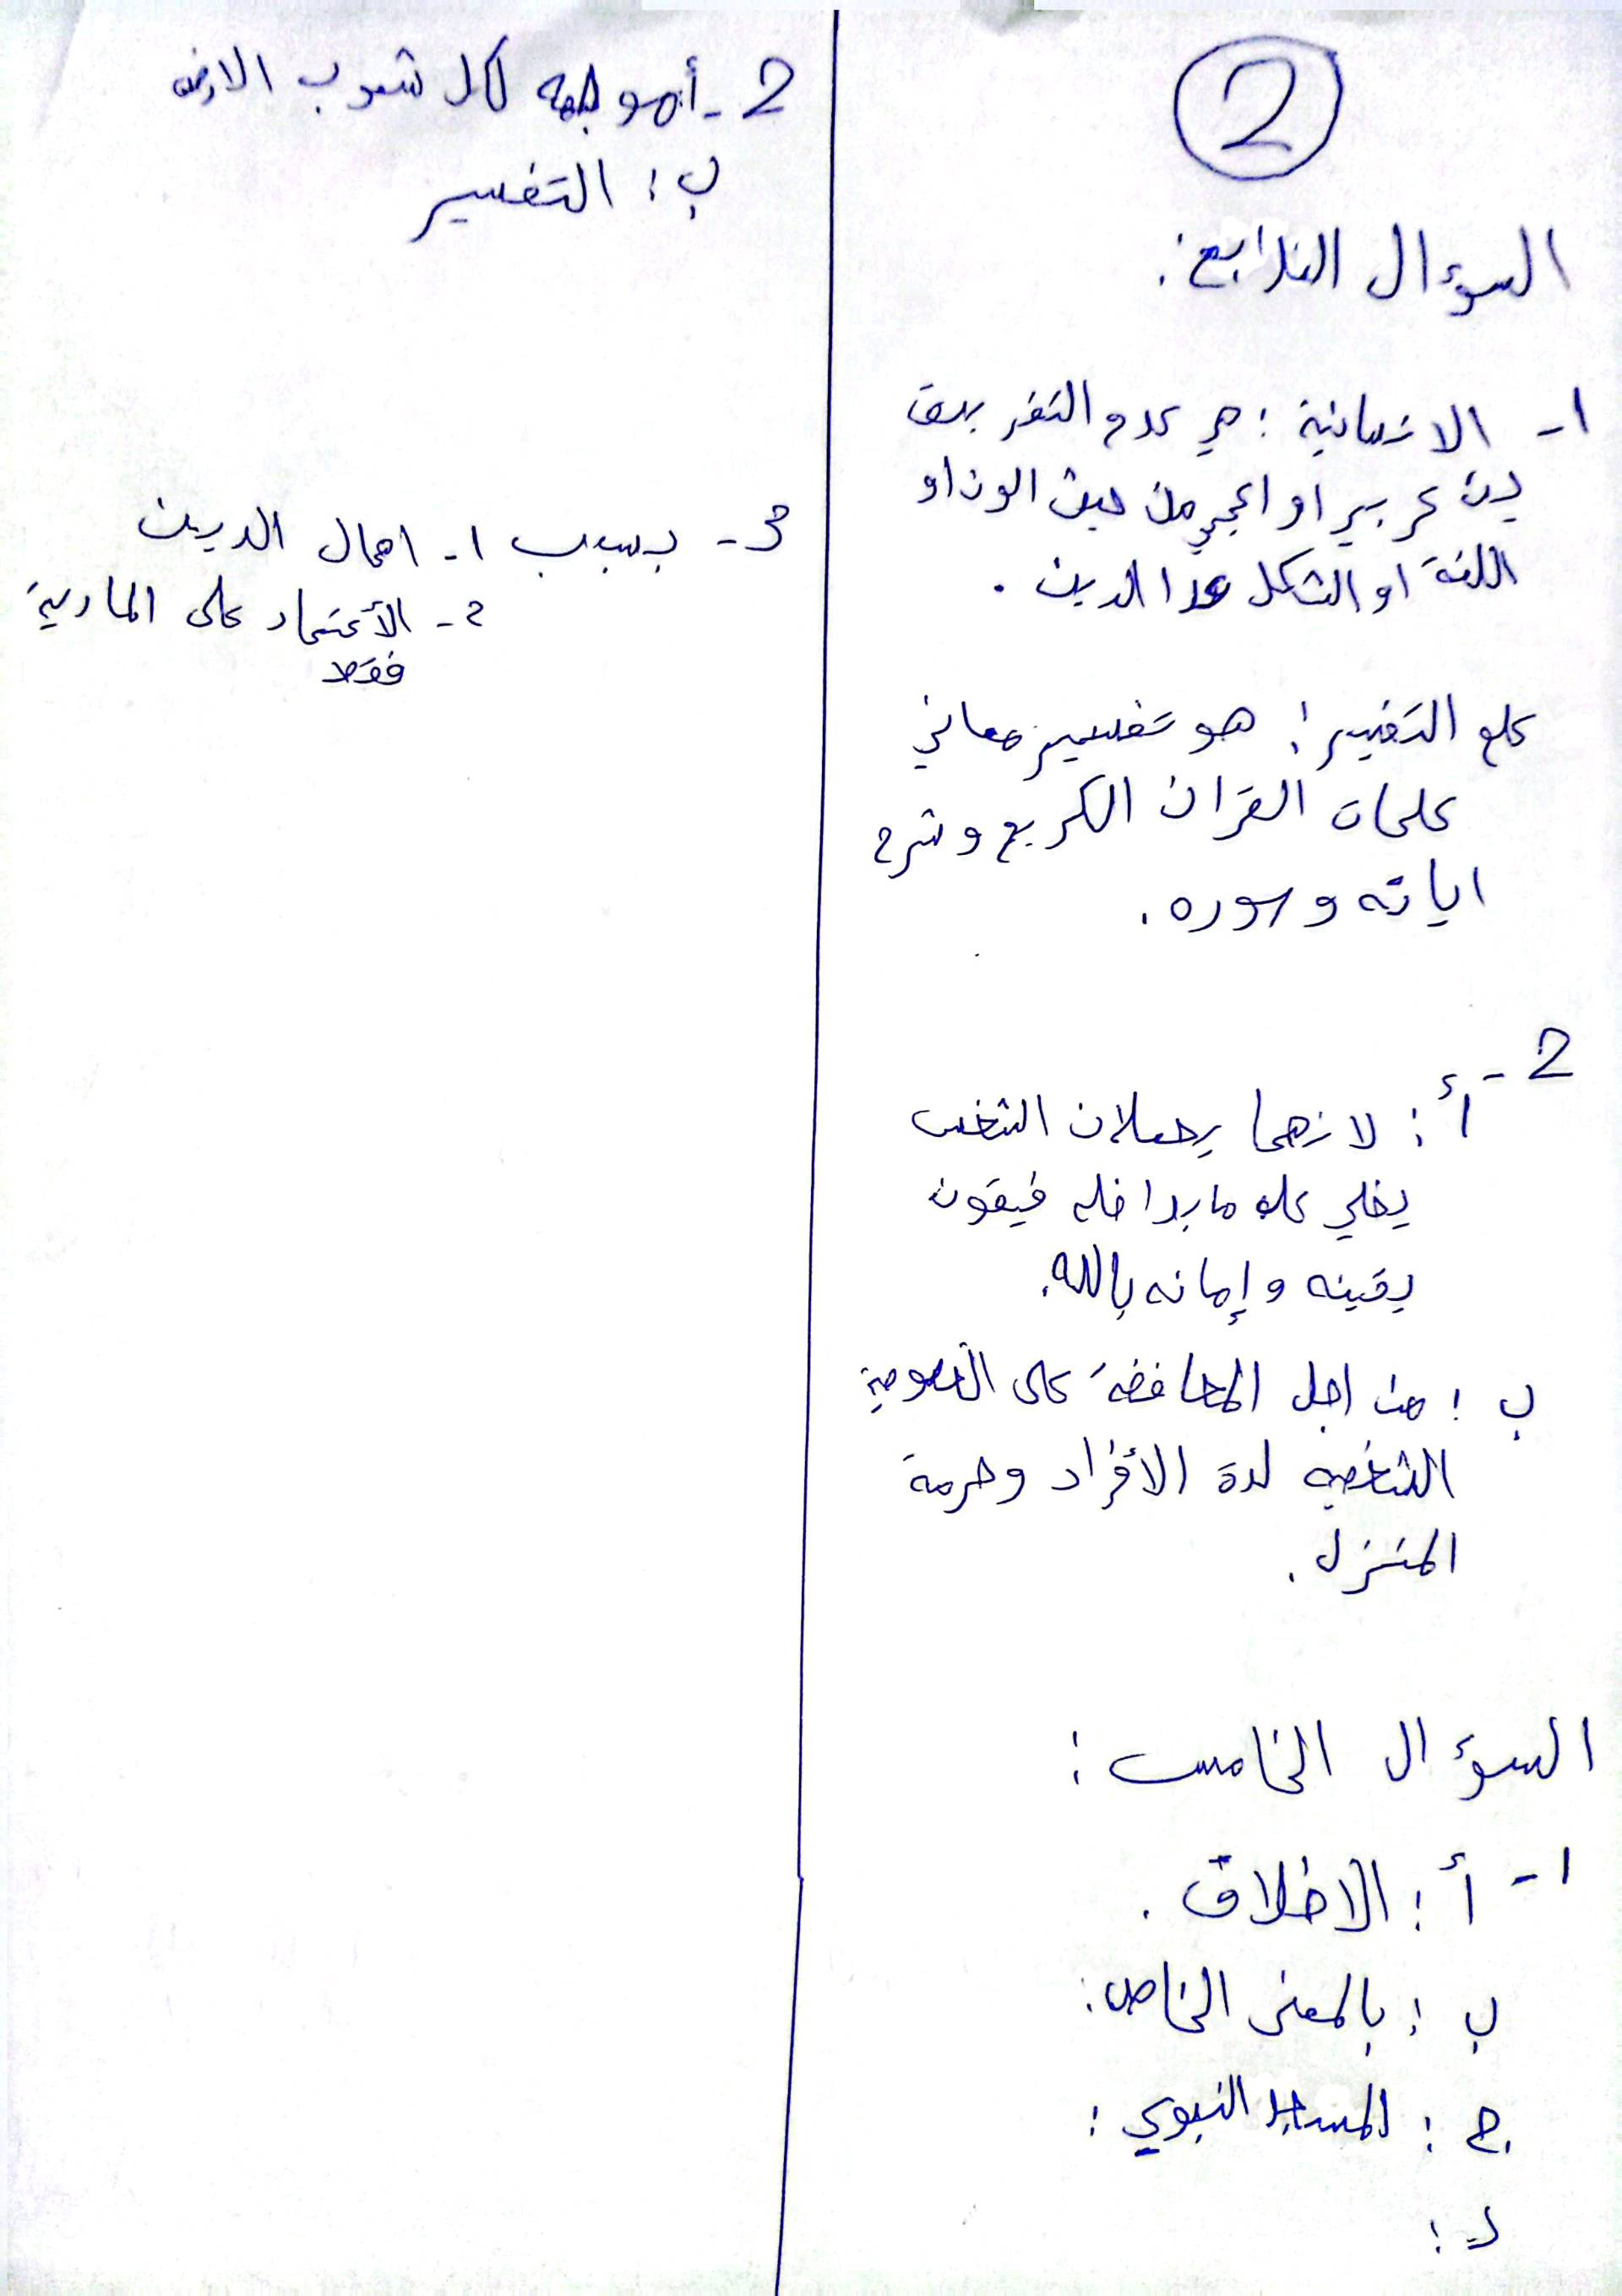 2
السؤال الرابع:
1- الانسانية: هي عدم التفريق
بين عربي او اعجمي من حيث الون او
اللغة او الشكل عدا الدين.
علم التفسير: هو تفسير معاني
كلمات القران الكريم وشرح
اياته وسوره.
2-
أ: لانهما يجعلان الشخص
يخلي كله ما بداخله فيقون
يقينه وإمانه بالله.
ب: من اجل المحافضة على الخصوصية
الشخصيه لدة الأفراد وحرمة
المنزل.
السؤال الخامس:
1- أ: الاخلاق.
ب: بالمعنى الخاص:
ج: المسجد النبوي:
د:
2- أ: موجهه لكل شعوب الارض
ب: التفسير
3- بسبب 1- اهمال الدين
2- الأعتماد على المادية
فقط